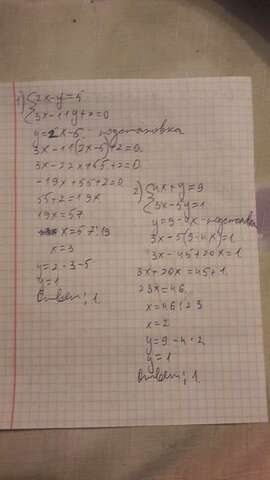 1) {2x-y=5
{3x-11y+2=0
y=2x-5 - подстановка
3x-11(2x-5)+2=0
3x-22x+55+2=0
-19x+55+2=0
55+2=19x
19x=57
x=57:19
x=3
y=2·3-5
y=1
Ответ: 1.
2) {4x+y=9
{3x-5y=1
y=9-4x - подстановка
3x-5(9-4x)=1
3x-45+20x=1
3x+20x=45+1
23x=46
x=46:23
x=2
y=9-4·2
y=1
Ответ: 1.